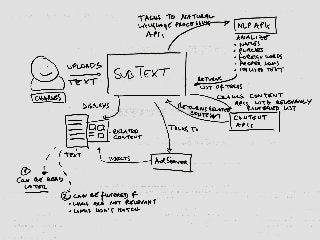 TALKS TO NATURAL
LANGUAGE PROCESSING
APIs
NLP APIs
ANALYZE
• NAMES
• PLACES
• FOREIGN WORDS
• PROPER NOUNS
TEXT
UPLOADS
TEXT
SUBTEXT
CHARLES
RETURNS
LIST OF TERMS
CALLS CONTENT
APIs WITH RELEVANCY
LIST
CONTENT
APIs
RETURNS RELATED
CONTENT
DISPLAYS
RELATED
CONTENT
TEXT
TALKS TO
INJECTS
AD SERVER
①
CAN BE READ
LATER
②
CAN BE FILTERED IF
• LINKS ARE NOT RELEVANT
• LINKS DON'T MATCH